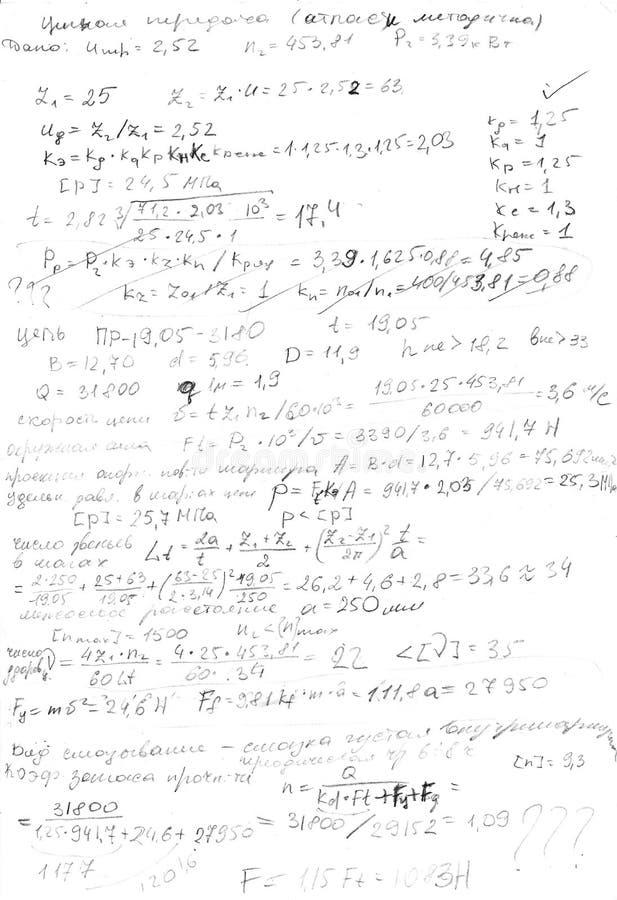 Цепная передача (атласы методичка)
Дано: Uпр = 2,52 n₂ = 453,81 P₂ = 3,39 кВт
Z₁ = 25 Z₂ = Z₁·U = 25·2,52 = 63
Uд = Z₂/Z₁ = 2,52
Kэ = Kд·Kа Kр Kн Kс Kреж = 1·1,25·1,3·1,25 = 2,03
[p] = 24,5 МПа
kд = 1,25
kа = 1
kр = 1,25
kн = 1
kс = 1,3
kреж = 1
t = 2,82 ∛(71,2·2,03 10³ / 25·24,5·1) = 17,4
Pр = P₂·kэ·kz·kn / kряд = 3,39·1,625·0,88 = 4,85
??? kz = Z01/Z₁ = 1 kn = n01/n₁ = 400/453,81 = 0,88
цепь ПР-19,05-3180 t = 19,05
B = 12,70 d = 5,96 D = 11,9 h не > 18,2 bне > 33
Q = 31800 q 1м = 1,9
скорость цепи υ = t Z₁ n₂/60·10³ = 19,05·25·453,81 / 60000 = 3,6 м/с
окружная сила Ft = P₂·10³/υ = 3390/3,6 = 941,7 Н
проекция опорн. пов-ти шарнира A = B·d = 12,7·5,96 = 75,692
удельн давл. в шарнах цепи p = Ft Kэ/A = 941,7·2,03/75,692 = 25,3 МПа
[p] = 25,7 МПа p < [p]
число звеньев
в шагах Lt = 2a/t + Z₁+Z₂/2 + (Z₂-Z₁/2π)² t/a =
= 2·250/19,05 + 25+63/19,05 + (63-25/2·3,14)² 19,05/250 = 26,2 + 4,6 + 2,8 = 33,6 ≈ 34
межосевое расстояние a = 250 мм
[n max] = 1500 n₂ < [n]max
число
ударов ν = 4Z₁·n₂/60Lt = 4·25·453,81/60·34 = 22 < [ν] = 35
Fυ = mυ² = 24,6 Н Ff = 9,81 kf·m·a = 111,8a = 27950
Вид смазывание – смазка густая внутришарнирная
периодическая 6-8 ч
Коэф. запаса прочн-ти n = Q / Kд·Ft+Fυ+Fg = [n] = 9,3
= 31800 / 1,25·941,7+24,6+27950 = 31800/29152 = 1,09 ???
1177 1201,6
F = 1,15 Ft = 1083Н